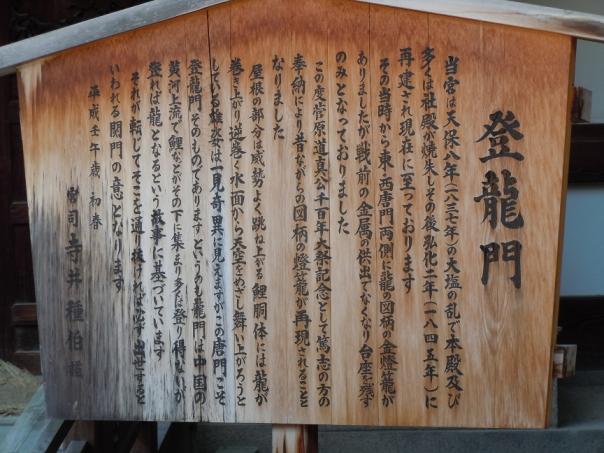 登龍門
当宮は天保八年(一八三七年)の大塩の乱で本殿及び
多くは社殿が焼失しその後弘化二年(一八四五年)に
再建され現在に至っております
その当時から東・西唐門両側に龍の図柄の金燈籠が
ありましたが戦前の金属の供出でなくなり台座を残す
のみとなっておりました
この度菅原道真公千百年大祭記念として篤志の方の
奉納により昔ながらの図柄の燈籠が再現されることと
なりました
屋根の部分は威勢よく跳ね上がる鯉胴体には龍が
巻き上がり逆巻く水面から天空をめざし舞い上がろうと
している雄姿は一見奇異に見えますがこの唐門こそ
登龍門そのものであります というのも龍門は中国の
黄河上流で鯉などがその下に集まり多くは登り得ないが
登れば龍となるという故事に基づいています
それが転じてそこを通り抜ければ必ず出世すると
いわれる関門の意となります
平成壬午歳 初春
宮司 寺井種伯